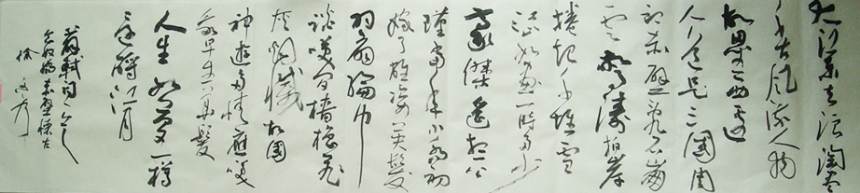 大江東去浪淘盡
千古風流人物
故壘西邊
人道是三國周
郎赤壁亂石崩
雲驚濤拍岸
捲起千堆雪
江山如畫一時多少
豪傑遙想公
瑾當年小喬初
嫁了雄姿英發
羽扇綸巾
談笑間檣櫓飛
灰煙滅故國
神遊多情應笑
我早生華髮
人生如夢一樽
還酹江月
蘇軾詞
念奴嬌赤壁懷古
徐